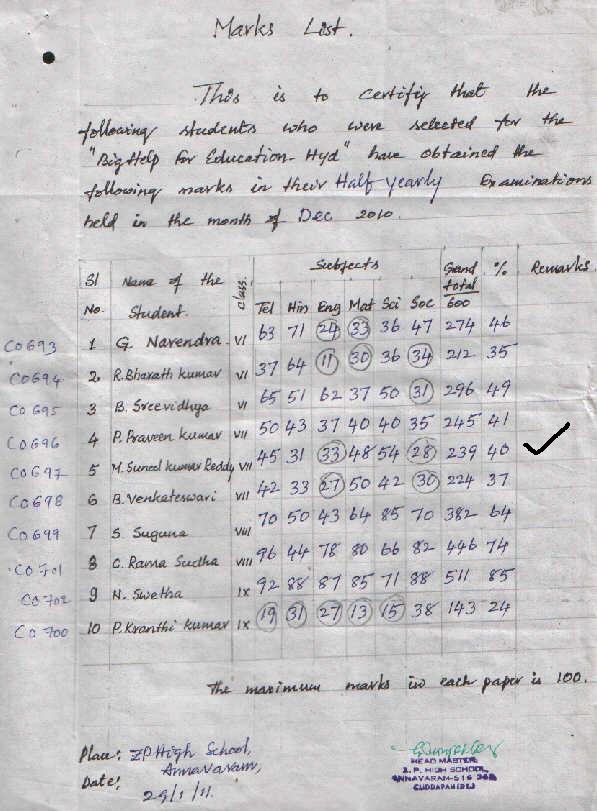 Marks List.
This is to certify that the
following students who were selected for the
"Big Help For Education-Hyd" have obtained the
following marks in their Half yearly Examinations
held in the month of Dec 2010.
Sl No. Name of the Student. Class. Subjects Grand total 600 % Remarks
Tel Hin Eng Mat Sci Soc
C0693 1 G. Narendra VI 63 71 24 33 36 47 274 46
C0694 2 R. Bharath kumar VI 37 64 11 30 36 34 212 35
C0695 3 B. Sreevidhya VI 65 51 62 37 50 31 296 49
C0696 4 P. Praveen kumar VII 50 43 37 40 40 35 245 41
C0697 5 M. Suneel kumar Reddy VII 45 31 33 48 54 28 239 40
C0698 6 B. Venkateswari VII 42 33 27 50 42 30 224 37
C0699 7 S. Suguna VIII 70 50 43 64 85 70 382 64
C0701 8 C. Rama Sudha VIII 96 44 78 80 66 82 446 74
C0702 9 N. Swetha IX 92 88 87 85 71 88 511 85
C0700 10 P. Kranthi kumar IX 19 31 27 13 15 38 143 24
The maximum marks in each paper is 100.
Place: ZP High School,
Annavaram,
Date: 29/1/11.
HEAD MASTER
Z. P. HIGH SCHOOL,
ANNAVARAM-516
CUDDAPAH